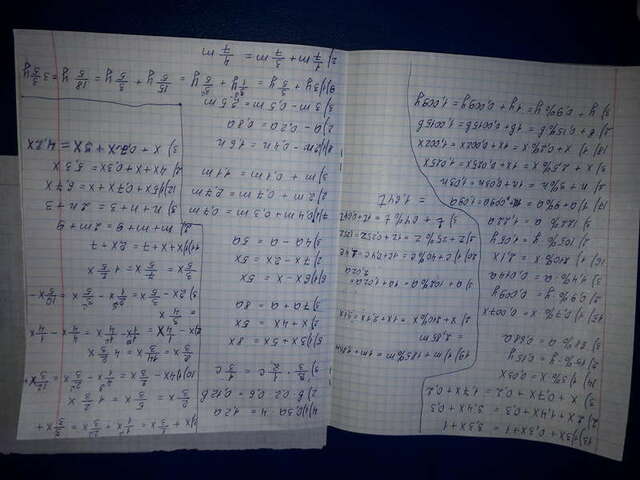 13) 1) 3x + 0,3x + 1 = 3,3x + 1
2) 2x + 1,4x + 0,3 = 3,4x + 0,3
3) x + 0,7x + 0,2 = 1,7x + 0,2
14) 1) 3% x = 0,03x
2) 15% y = 0,15y
3) 68% a = 0,68a
15) 1) 0,7% x = 0,007x
2) 0,9% y = 0,009y
3) 1,4% a = 0,014a
16) 1) 210% x = 2,1x
2) 105% y = 1,05y
3) 122% a = 1,22a
17) 1) a + 9% a = 1a + 0,09a = 1,09a
2) n + 3% n = 1n + 0,03n = 1,03n
3) x + 2,5% x = 1x + 0,025x = 1,025x
18) 1) x + 0,2% x = 1x + 0,002x = 1,002x
2) b + 0,15% b = 1b + 0,0015b = 1,0015b
3) y + 0,9% y = 1y + 0,009y = 1,009y
19) 1) m + 185% m = 1m + 1,85m
= 2,85m
2) x + 210% x = 1x + 2,1x = 3,1x
3) a + 102% a = 1a + 1,02a =
2,02a
20) 1) c + 40% c = 1c + 0,4c = 1,4c
2) z + 25% z = 1z + 0,25z = 1,25z
3) t + 64% t = 1t + 0,64t
= 1,64t
4) 1) 0,3a · 4 = 1,2a
2) b · 0,2 · 0,6 = 0,12b
5) 1) 3x + 5x = 8x
2) x + 4x = 5x
3) 7a + a = 8a
6) 1) 6x - x = 5x
2) 7x - 2x = 5x
3) 4a - a = 5a
7) 1) 0,4m + 0,3m = 0,7m
2) 2m + 0,7m = 2,7m
3) m + 0,1m = 1,1m
8) 1) 2n - 0,4n = 1,6n
2) a - 0,2a = 0,8a
3) 3m - 0,5m = 2,5m
9) 1) 3y + 3/5 y = 3/1 y + 3/5 y = 15/5 y + 3/5 y = 18/5 y = 3 3/5 y
2) 1/7 m + 3/7 m = 4/7 m
2/3 x = 5/3 x = 1 2/3 x
2/3 x = 14/3 x = 4 2/3 x
= 3/4 x
3) 2x - 3/5 x = 2/1 x - 3/5 x = 10/5 x -
3/5 x = 7/5 x = 1 2/5 x
11) 1) x + x + 7 = 2x + 7
2) m + m + 9 = 2m + 9
3) n + n + 3 = 2n + 3
12) 1) 5x + 0,7x + x = 6,7x
2) 4x + x + 0,3x = 5,3x
3) x + 0,2x + 3x = 4,2x